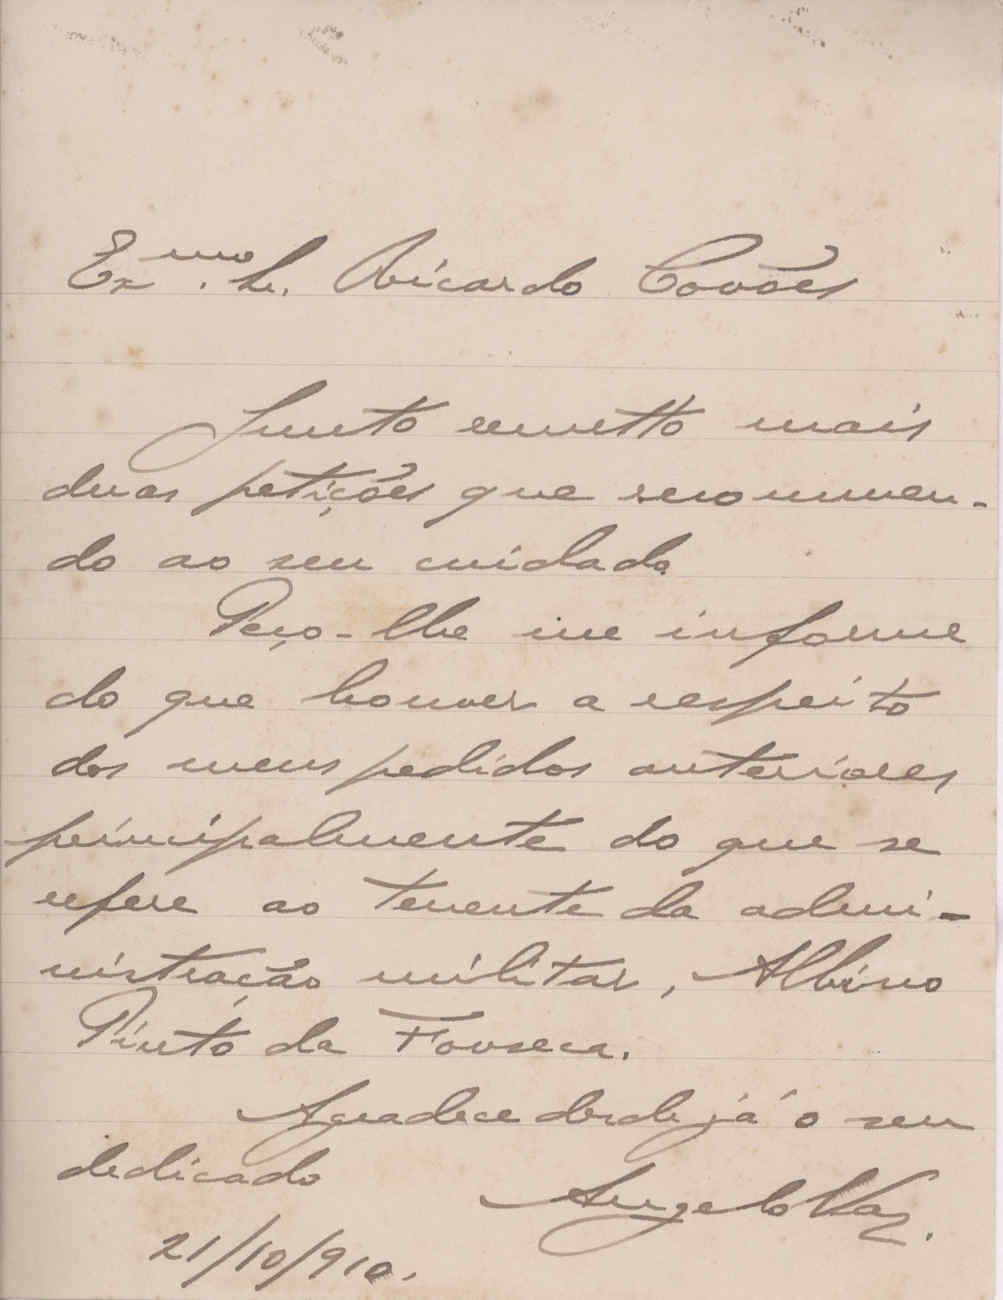 Ex.mo Sr. Ricardo Covões
Junto remetto mais
duas petições que recommen-
do ao seu cuidado
Peço-lhe me informe
do que houver a respeito
dos meus pedidos anteriores
principalmente do que se
refere ao tenente da admi-
nistração militar, Albino
Pinto da Fonseca.
Agradece desde já o seu
dedicado
Angelo Vaz.
21/10/910.